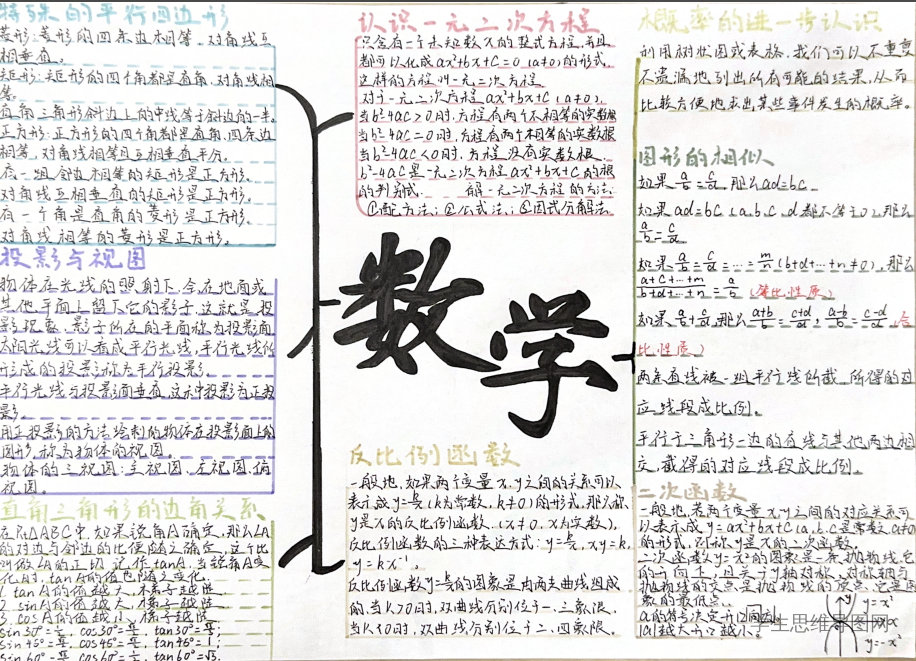 特殊的平行四边形
菱形:菱形的四条边相等,对角线互
相垂直。
矩形:矩形的四个角都是直角,对角线相
等。
直角三角形斜边上的中线等于斜边的一半。
正方形:正方形的四个角都是直角,四条边
相等,对角线相等且互相垂直平分。
有一组邻边相等的矩形是正方形。
对角线互相垂直的矩形是正方形。
有一个角是直角的菱形是正方形。
对角线相等的菱形是正方形。
投影与视图
物体在光线的照射下,会在地面或
其他平面上留下它的影子,这就是投
影现象,影子所在的平面称为投影面
太阳光线可以看成平行光线,平行光线所
形成的投影称为平行投影。
平行光线与投影面垂直,这种投影为正投
影。
用正投影的方法绘制的物体在投影面上的
图形,称为物体的视图。
物体的三视图:主视图、左视图、俯
视图。
直角三角形的边角关系
在Rt△ABC中,如果锐角A确定,那么∠A
的对边与邻边的比便随之确定,这个比
叫做∠A的正切,记作tanA,当锐角A变
化时,tanA的值也随之变化。
1. tanA的值越大,梯子越陡
2. sinA的值越大,梯子越陡
3. cosA的值越小,梯子越陡
sin30°= cos30°= tan30°=
sin45°= cos45°= tan45°=1
sin60°= cos60°= tan60°=√3.
认识一元二次方程
只含有一个未知数X的整式方程,并且
都可以化成ax²+bx+C=0(a≠0)的形式,
这样的方程叫一元二次方程
对于一元二次方程ax²+bx+C(a≠0),
当b²-4ac>0时,方程有两个不相等的实数根
当b²-4ac=0时,方程有两个相等的实数根
当b²-4ac<0时,方程没有实数根。
b²-4ac是一元二次方程ax²+bx+C的根
的判别式. 解一元二次方程的方法:
①配方法;②公式法;③因式分解法
数学
反比例函数
一般地,如果两个变量x,y之间的关系可以
表示成y=k/x(k为常数,k≠0)的形式,那么称
y是x的反比例函数,(x≠0,x为实数),
反比例函数的三种表达方式:y=k/x,xy=k,
y=kx⁻¹,
反比例函数y=k/x的图象是由两支曲线组成
的,当k>0时,双曲线分别位于一、三象限,
当k<0时,双曲线分别位于二、四象限,
概率的进一步认识
利用树状图或表格,我们可以不重复
不遗漏地列出所有可能的结果,从而
比较方便地求出某些事件发生的概率。
图形的相似
如果a/b=c/d,那么ad=bc.
如果ad=bc(a、b、c、d都不等于0),那么
a/b=c/d
如果a/b=c/d=…=m/n(b+d+…+n≠0),那么
a+c+…+m/b+d+…+n=a/b(等比性质)
如果a/b=c/d,那么a+b/b=c+d/d,a-b/b=c-d/d(合
比性质)
两条直线被一组平行线所截,所得的对
应线段成比例。
平行于三角形一边的直线与其他两边相
交,截得的对应线段成比例。
二次函数
一般地,若两个变量x,y之间的对应关系可
以表示成y=ax²+bx+C(a,b,c是常数,a≠0)
的形式,则称y是x的二次函数。
二次函数y=x²的图象是一条抛物线,它
的开口向上,且关于y轴对称,对称轴与
抛物线的交点是抛物线的顶点,它是图
象的最低点。
a的符号决定开口方向
|a|越大开口越小。
y
y=x²
x
y=-x²